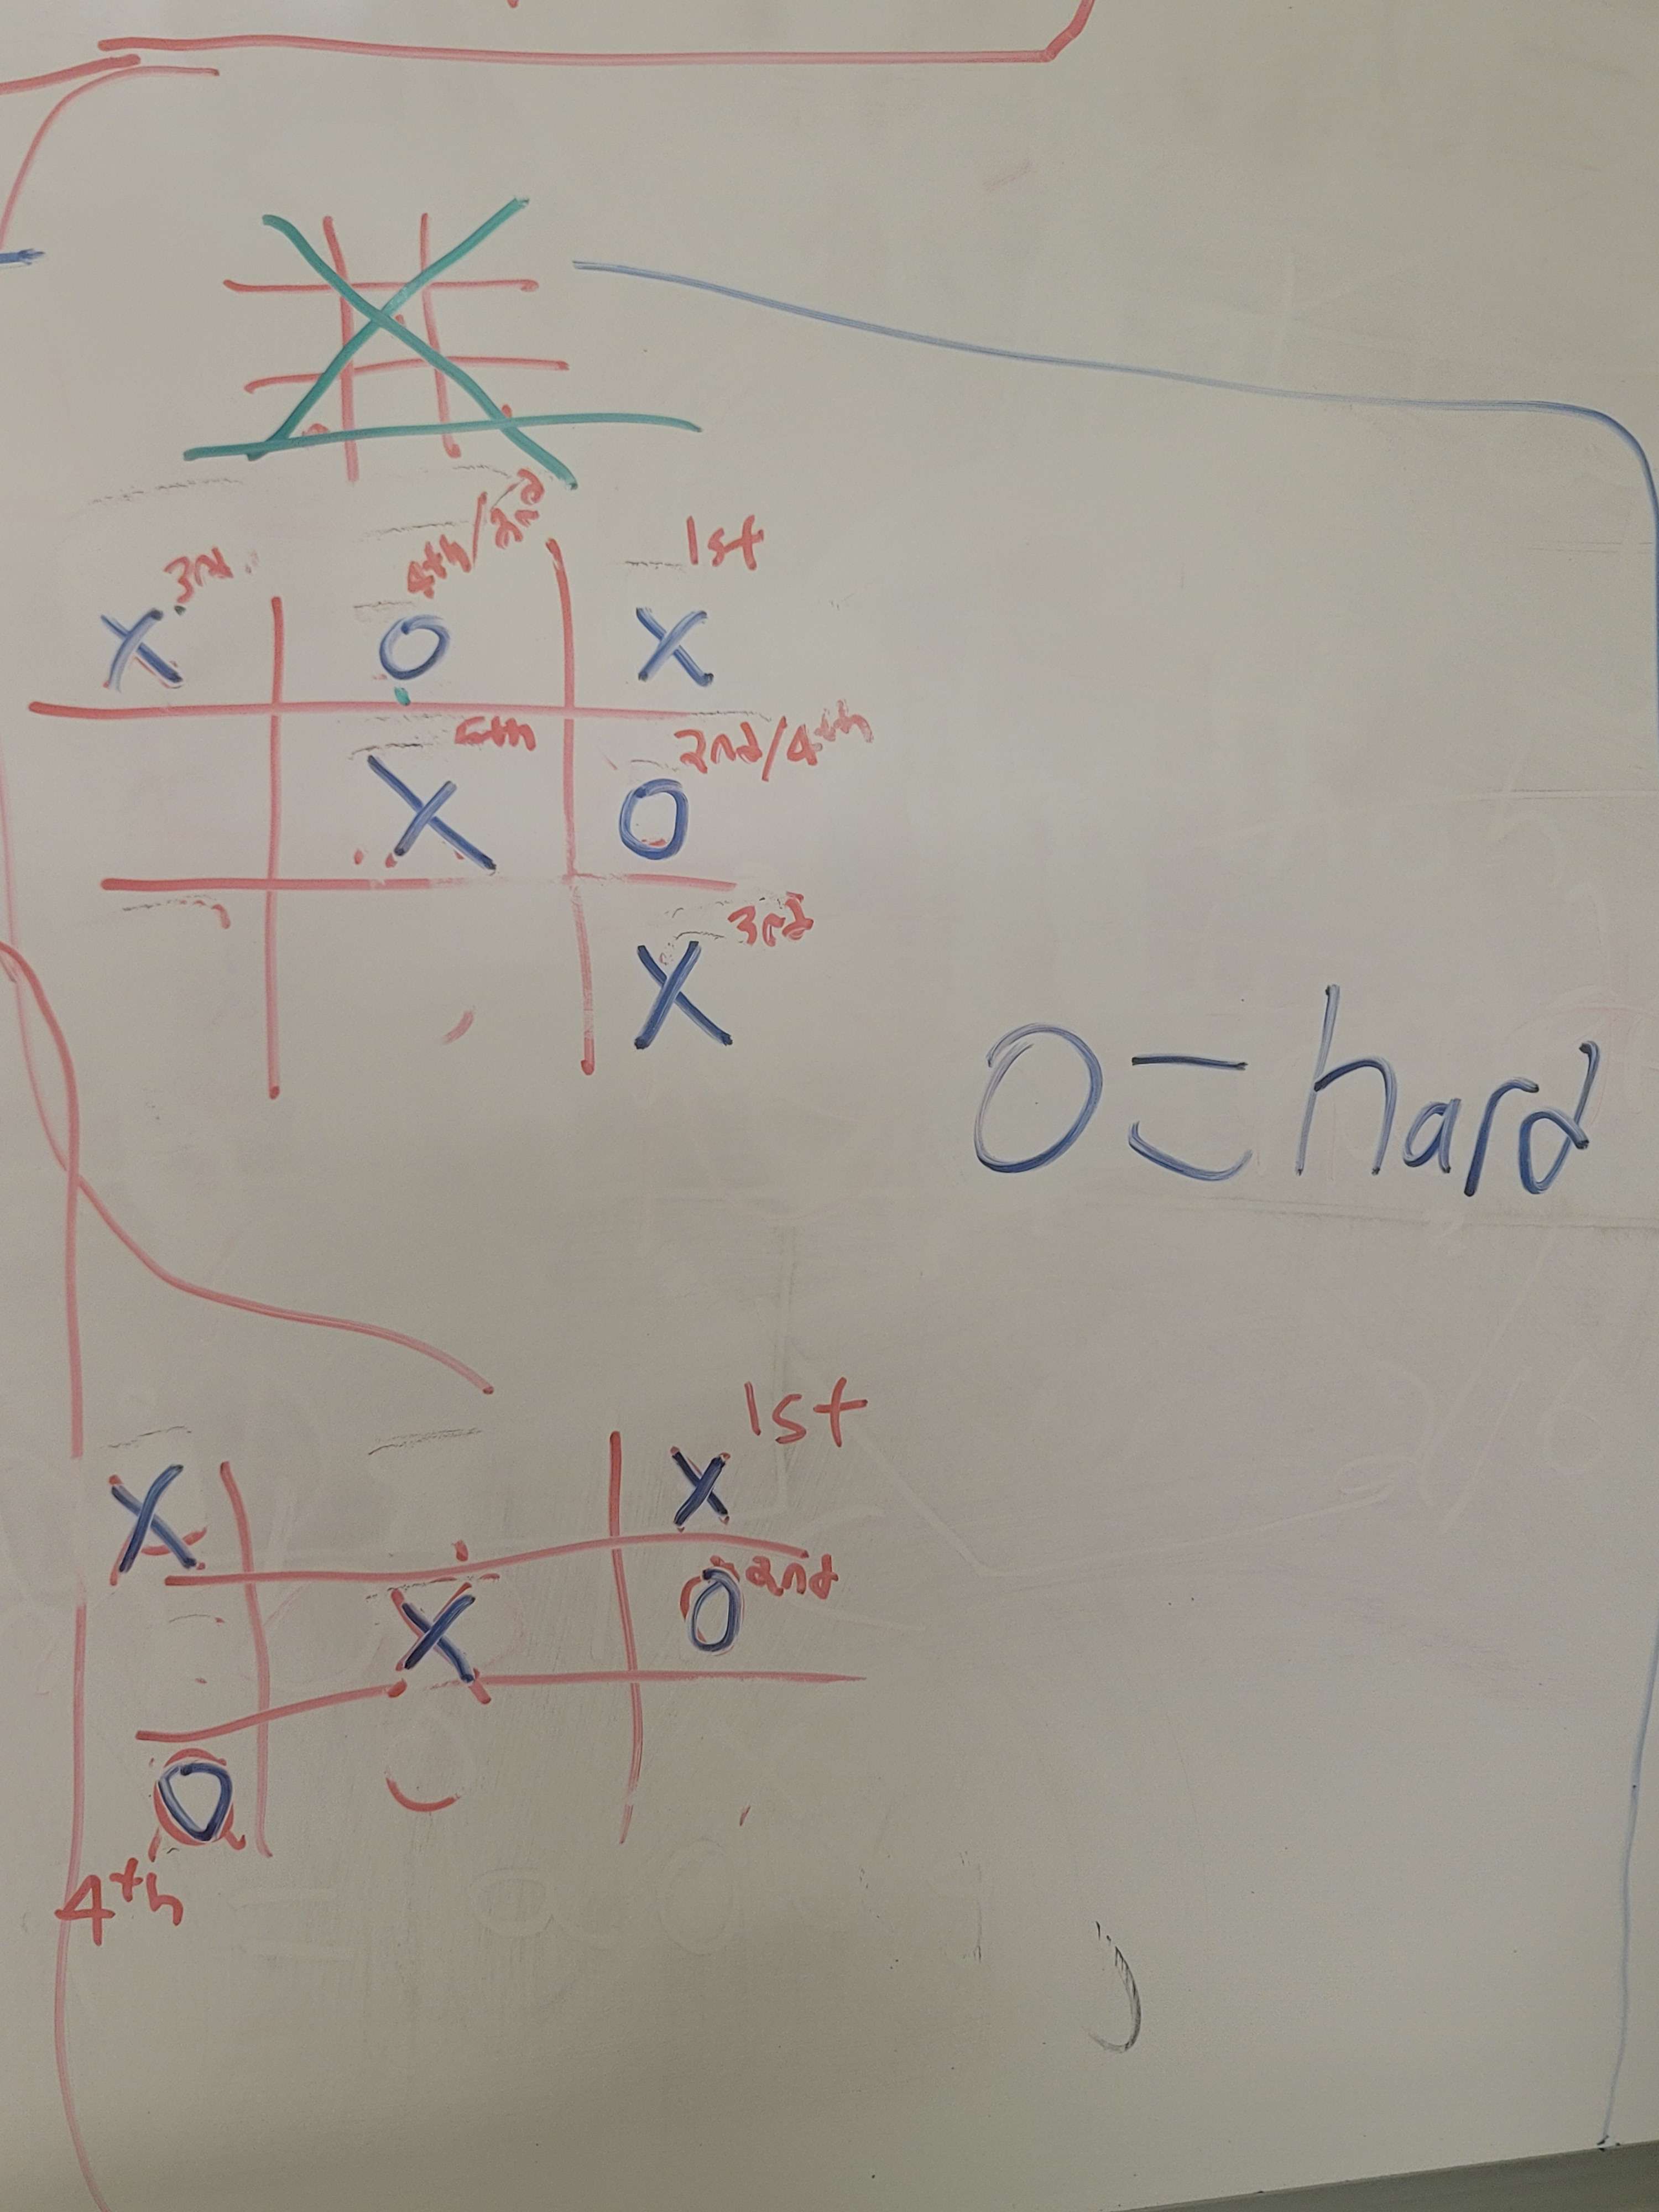 3rd 4th/2nd 1st
X O X
5th 2nd/4th
X O
3rd
X
O = hard
1st
X X
2nd
X O
O
4th